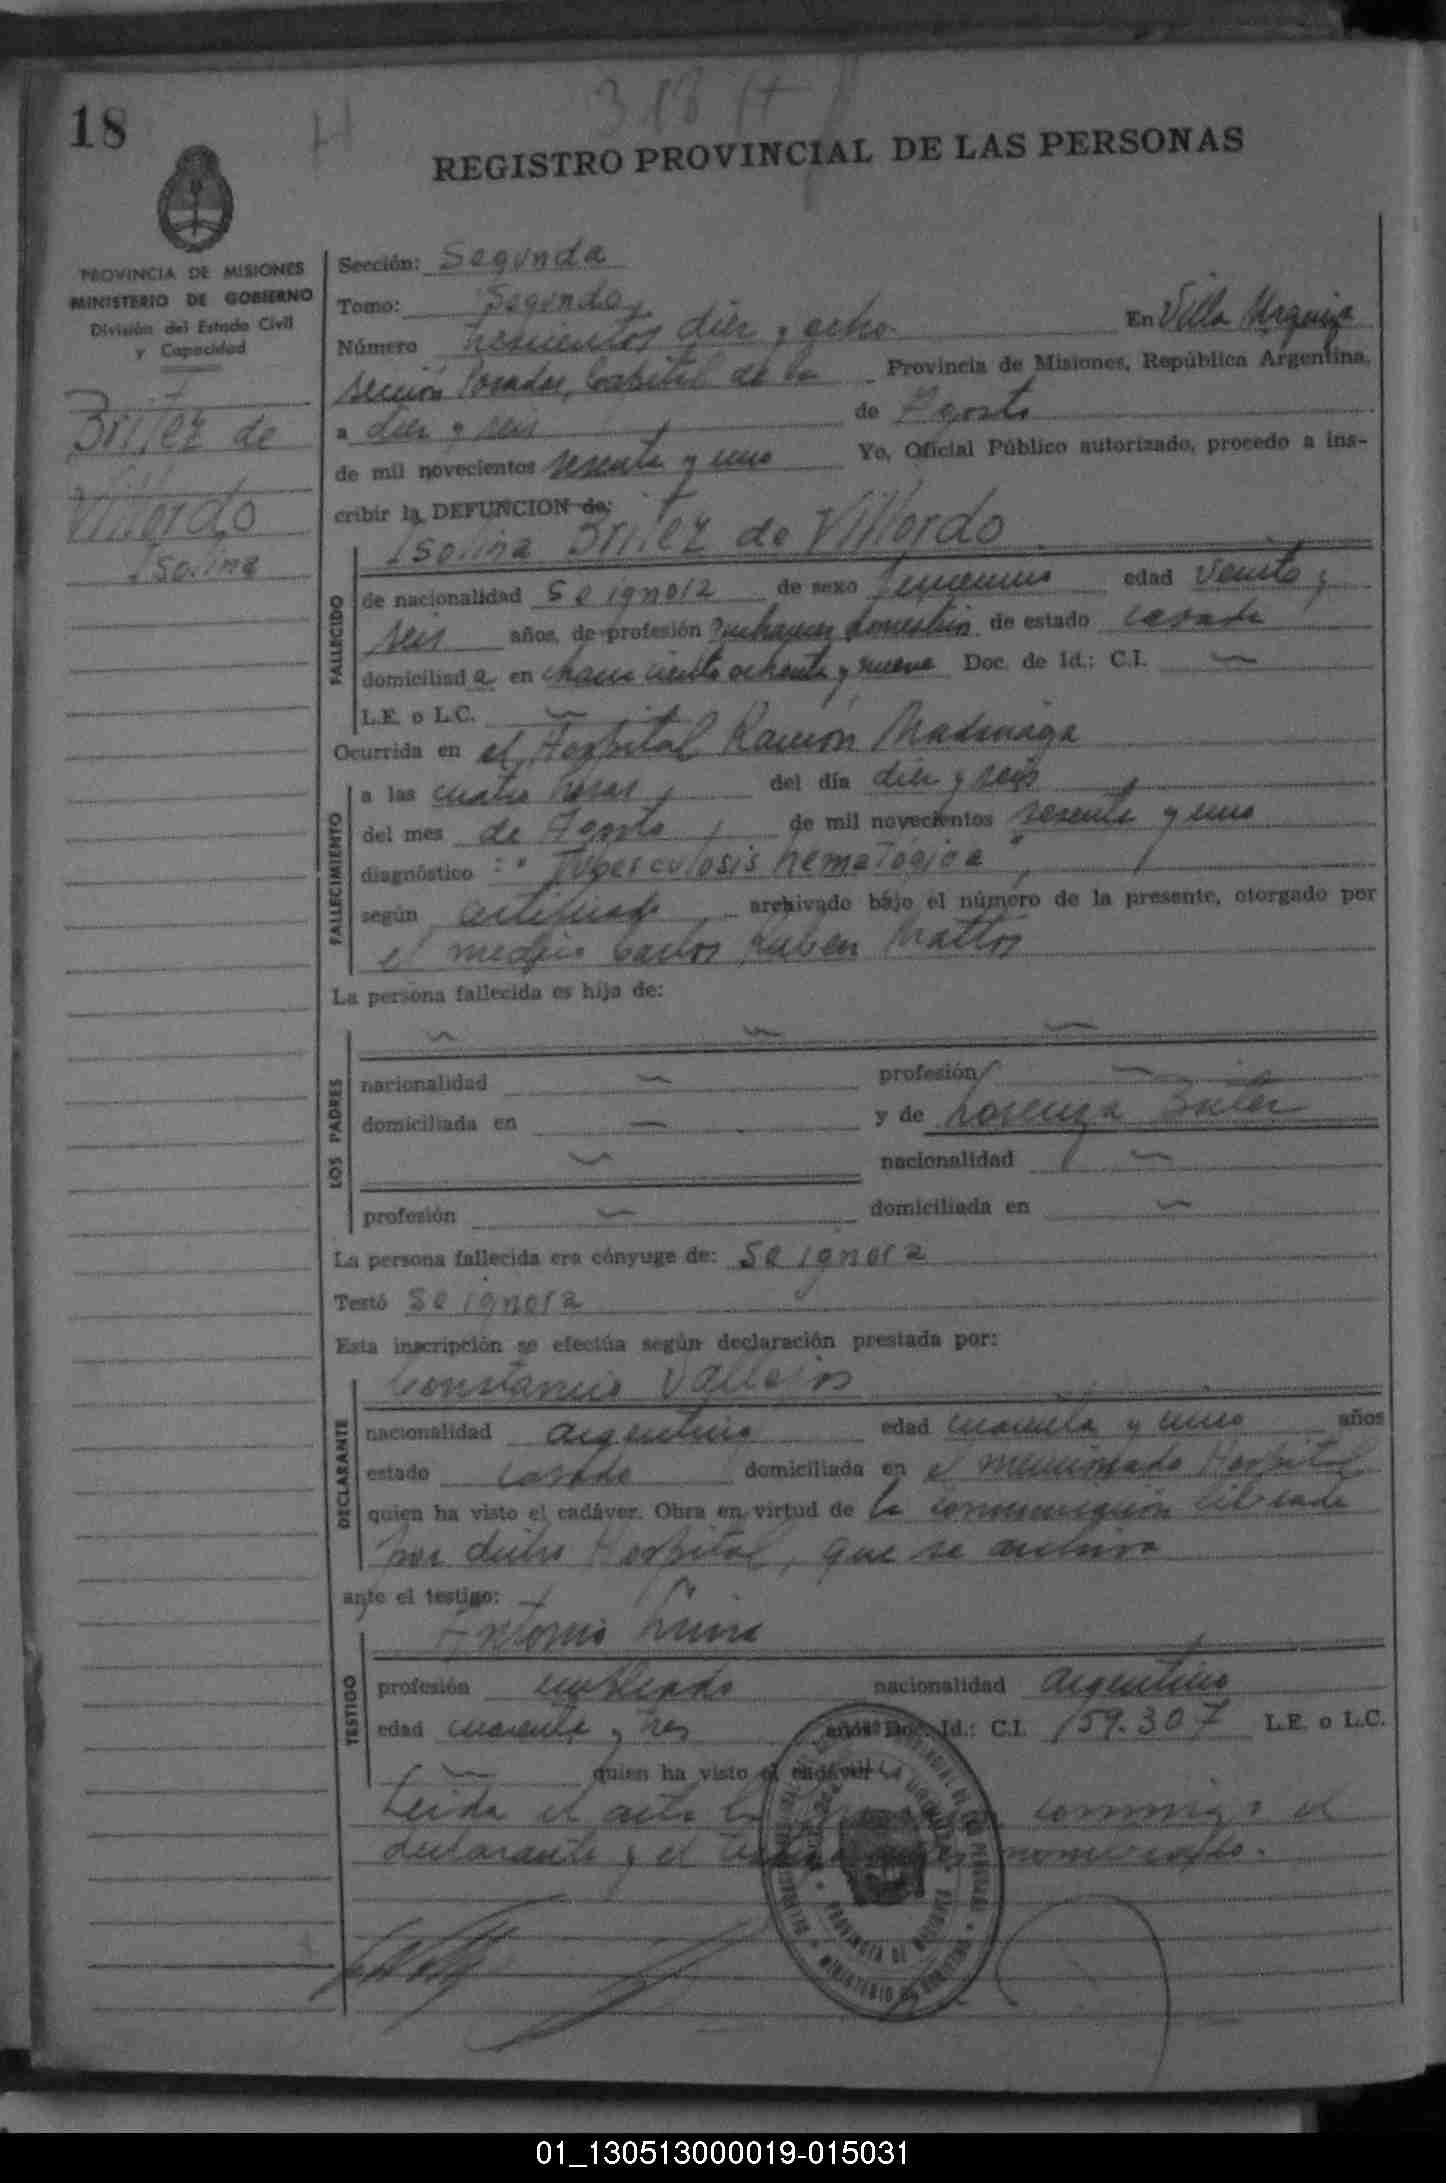 18
H
318
REGISTRO PROVINCIAL DE LAS PERSONAS
PROVINCIA DE MISIONES
MINISTERIO DE GOBIERNO
División del Estado Civil
y Capacidad
Britez de
Villordo
Isolina
Sección: Segunda
Tomo: Segundo
Número trescientos diez y ocho En Villa Urquiza
sección Posadas, Capital de la Provincia de Misiones, República Argentina,
a diez y seis de Agosto
de mil novecientos sesenta y uno Yo, Oficial Público autorizado, procedo a ins-
cribir la DEFUNCION de:
Isolina Britez de Villordo
FALLECIDO
de nacionalidad Se ignora de sexo femenino edad veinte y
seis años, de profesión quehaceres domésticos de estado casada
domiciliad a en chacra ciento ochenta y nueve Doc. de Id.: C.I. —
L.E. o L.C. —
Ocurrida en el Hospital Ramón Madariaga
FALLECIMIENTO
a las cuatro horas, del día diez y seis
del mes de Agosto, de mil novecientos sesenta y uno
diagnóstico : "Tuberculosis hematógica",
según certificado archivado bajo el número de la presente, otorgado por
el medico Carlos Ruben Mattos
La persona fallecida es hija de:
LOS PADRES
— — —
nacionalidad — profesión —
domiciliada en — y de Lorenza Britez
— nacionalidad —
profesión — domiciliada en —
La persona fallecida era cónyuge de: Se ignora
Testó Se ignora
Esta inscripción se efectúa según declaración prestada por:
Constancio Vallejos
DECLARANTE
nacionalidad argentino edad cuarenta y uno años
estado casado domiciliada en el mencionado Hospital
quien ha visto el cadáver. Obra en virtud de la comunicación librada
por dicho Hospital, que se archiva
ante el testigo:
Antonio
TESTIGO
profesión empleado nacionalidad argentino
edad cuarenta y tres años Doc. Id.: C.I. 159.307 L.E. o L.C.
— quien ha visto el cadáver
Leida el acta la conmigo el
declarante y el nombrados.
PROVINCIA DE MISIONES
MINISTERIO DE GOBIERNO
01_130513000019-015031